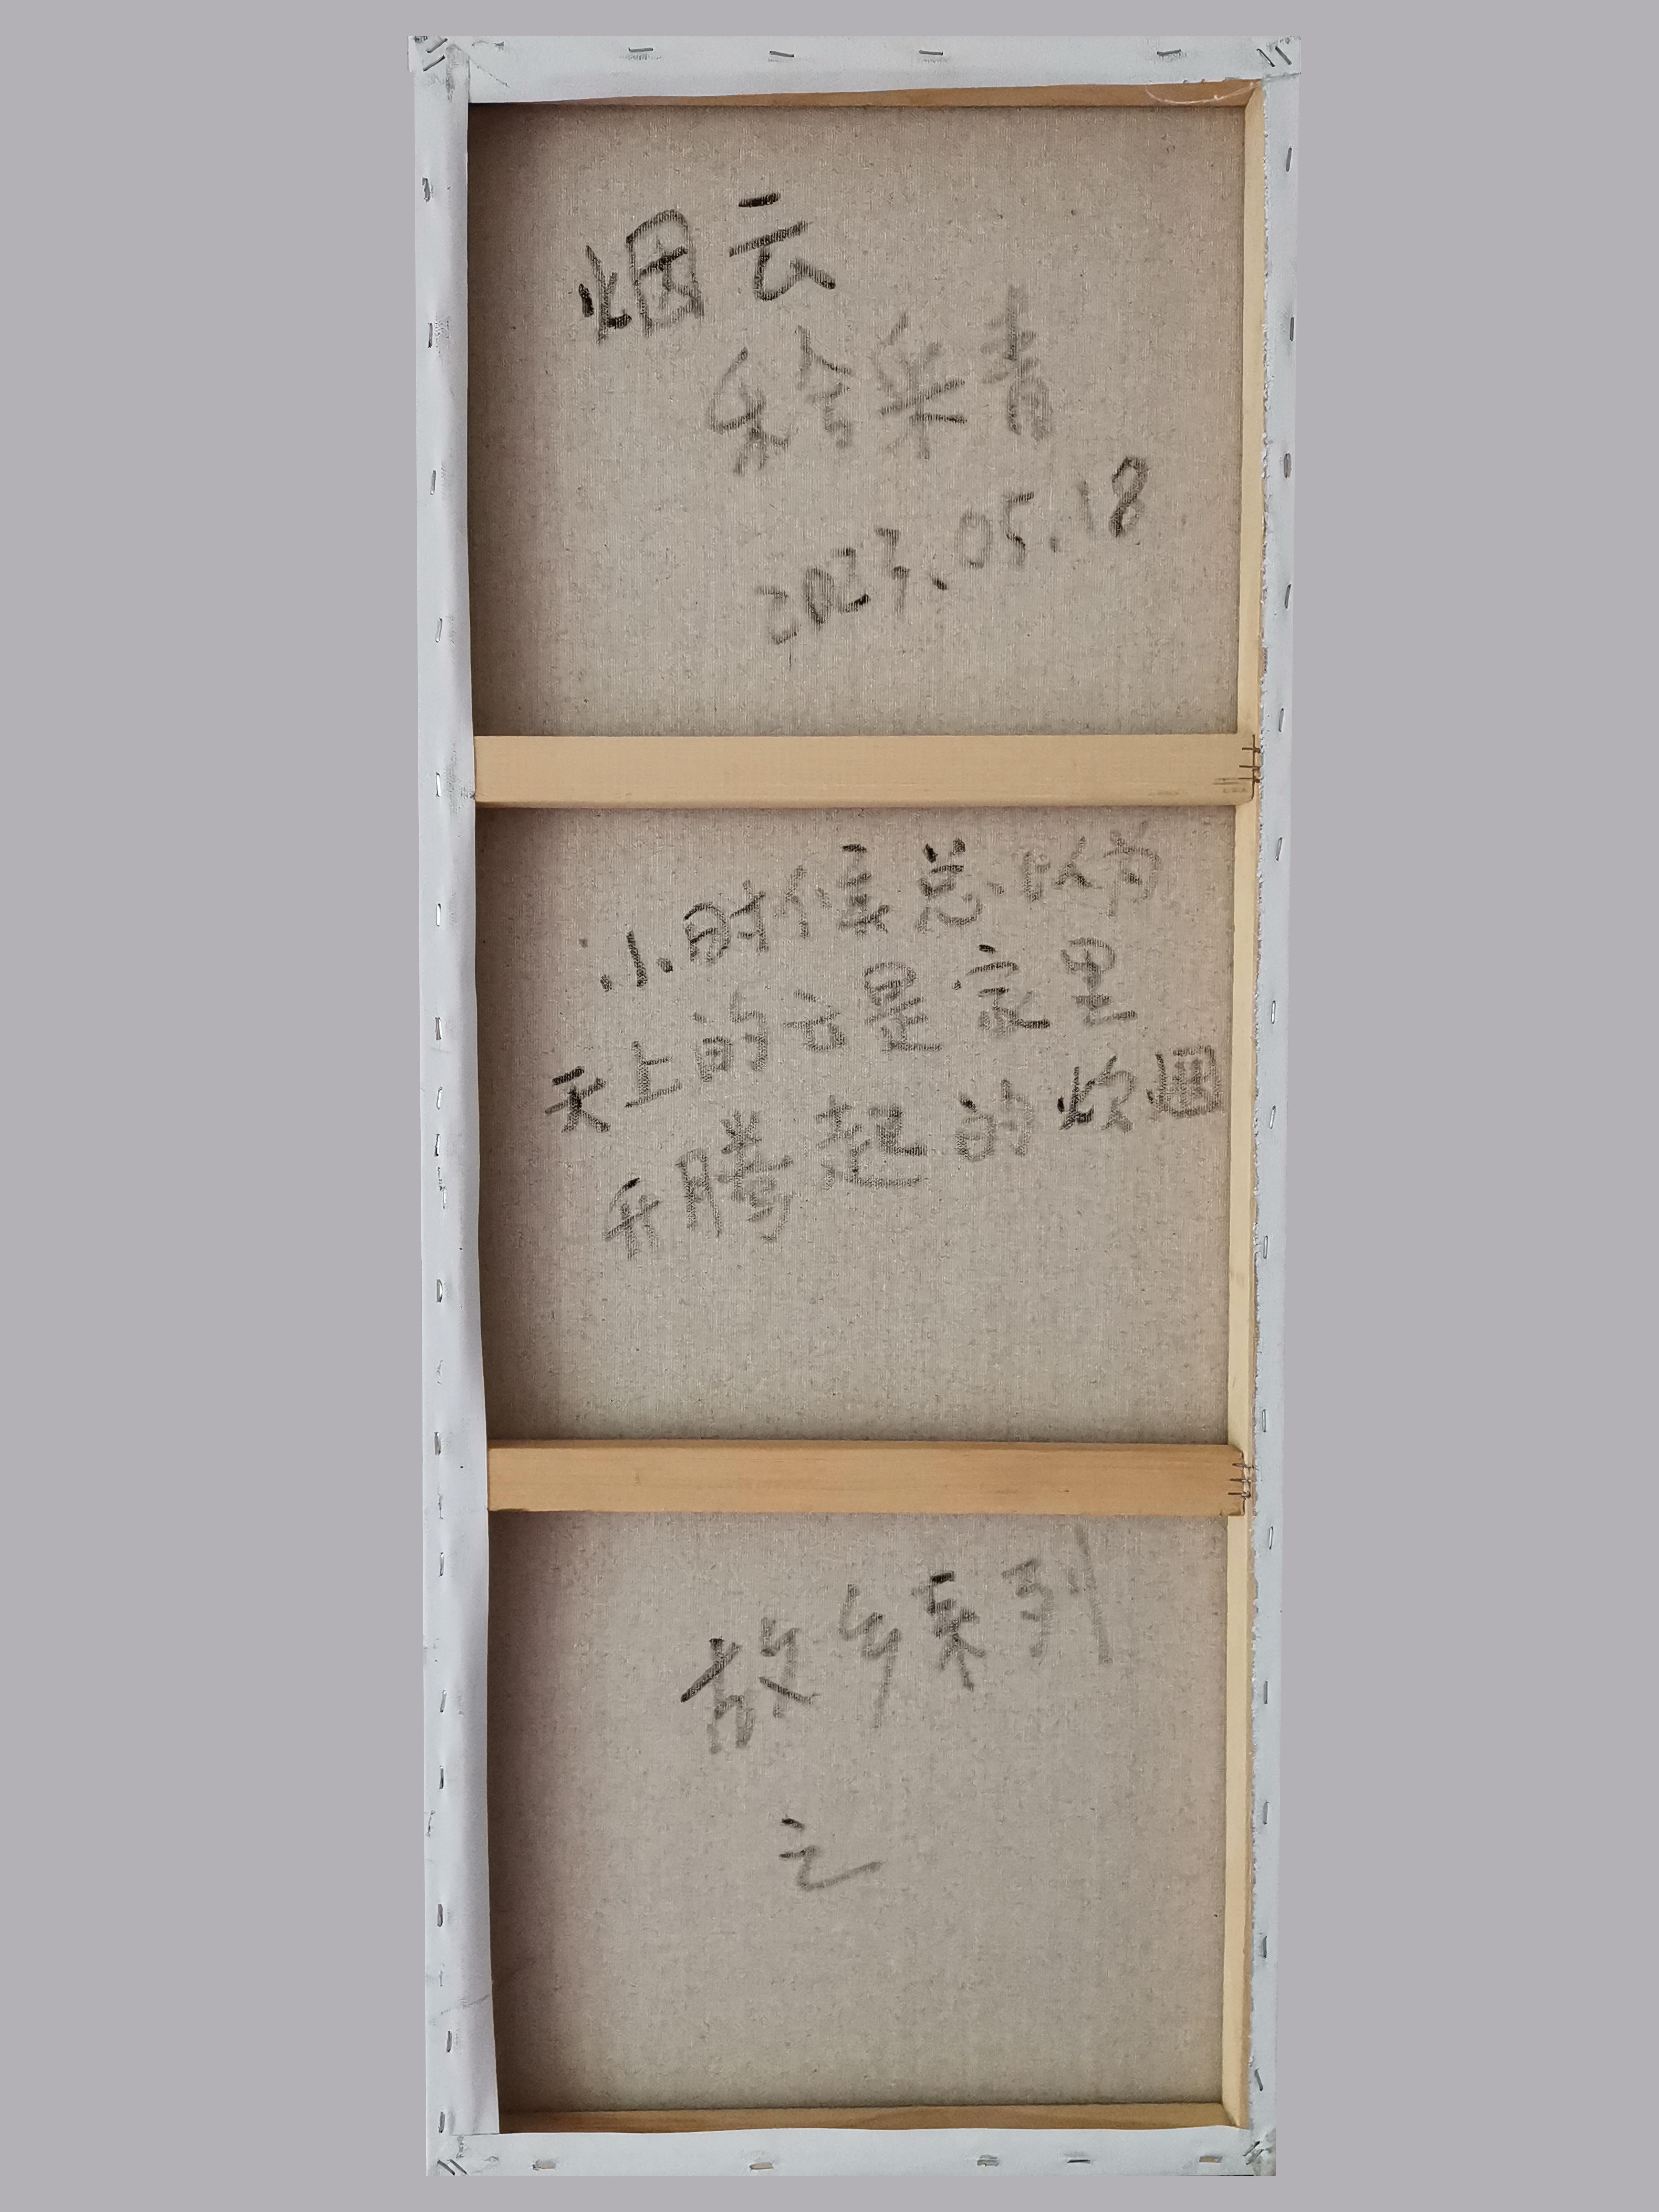 烟云
朱合米青
2023.05.18
小时候总以为
天上的云是家里
升腾起的炊烟
故乡系列
之